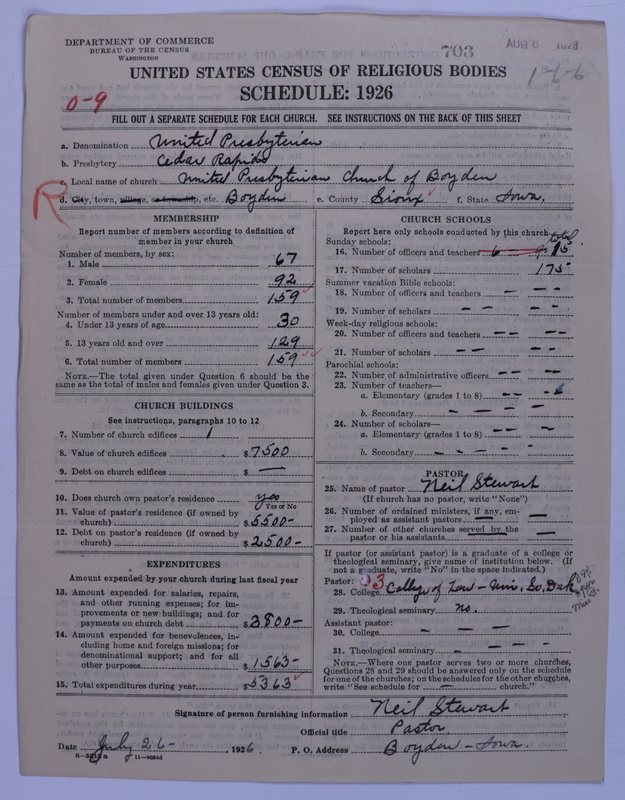 DEPARTMENT OF COMMERCE
BUREAU OF THE CENSUS
WASHINGTON
703
AUG 6 1926
1-6-6
UNITED STATES CENSUS OF RELIGIOUS BODIES
SCHEDULE: 1926
0-9
FILL OUT A SEPARATE SCHEDULE FOR EACH CHURCH. SEE INSTRUCTIONS ON THE BACK OF THIS SHEET
a. Denomination United Presbyterian
b. Presbytery Cedar Rapids
c. Local name of church United Presbyterian Church of Boyden
R
d. City, town, village, or township, etc. Boyden e. County Sioux f. State Iowa.
MEMBERSHIP
Report number of members according to definition of
member in your church
Number of members, by sex:
1. Male 67
2. Female 92
3. Total number of members 159
Number of members under and over 13 years old:
4. Under 13 years of age 30
5. 13 years old and over 129
6. Total number of members 159
NOTE.—The total given under Question 6 should be the
same as the total of males and females given under Question 3.
CHURCH BUILDINGS
See instructions, paragraphs 10 to 12
7. Number of church edifices 1
8. Value of church edifices $7500
9. Debt on church edifices $ —
10. Does church own pastor's residence yes
Yes or No
11. Value of pastor's residence (if owned by
church) $5500-
12. Debt on pastor's residence (if owned by
church) $2500-
EXPENDITURES
Amount expended by your church during last fiscal year
13. Amount expended for salaries, repairs,
and other running expenses; for im-
provements or new buildings; and for
payments on church debt $3800-
14. Amount expended for benevolences, in-
cluding home and foreign missions; for
denominational support; and for all
other purposes $1563-
15. Total expenditures during year $5363
CHURCH SCHOOLS
Report here only schools conducted by this church
Sunday schools: total
16. Number of officers and teachers 6 9 15
17. Number of scholars 175
Summer vacation Bible schools:
18. Number of officers and teachers — — —
19. Number of scholars — — — —
Week-day religious schools:
20. Number of officers and teachers — — — —
21. Number of scholars — — — —
Parochial schools:
22. Number of administrative officers — — — —
23. Number of teachers—
a. Elementary (grades 1 to 8) — —
b. Secondary — — — —
24. Number of scholars—
a. Elementary (grades 1 to 8) — — — —
b. Secondary — — — —
PASTOR
25. Name of pastor Neil Stewart
(If church has no pastor, write "None")
26. Number of ordained ministers, if any, em-
ployed as assistant pastors — —
27. Number of other churches served by the
pastor or his assistants — —
If pastor (or assistant pastor) is a graduate of a college or
theological seminary, give name of institution below. (If
not a graduate, write "No" in the space indicated.)
Pastor: 03
28. College College of Law - Uni. So. Dak
29. Theological seminary no.
Assistant pastor:
30. College — — —
31. Theological seminary — — — —
NOTE.—Where one pastor serves two or more churches,
Questions 28 and 29 should be answered only on the schedule
for one of the churches; on the schedules for the other churches,
write "See schedule for — church."
Signature of person furnishing information Neil Stewart
Official title Pastor
Date July 26-, 1926 P. O. Address Boyden - Iowa.